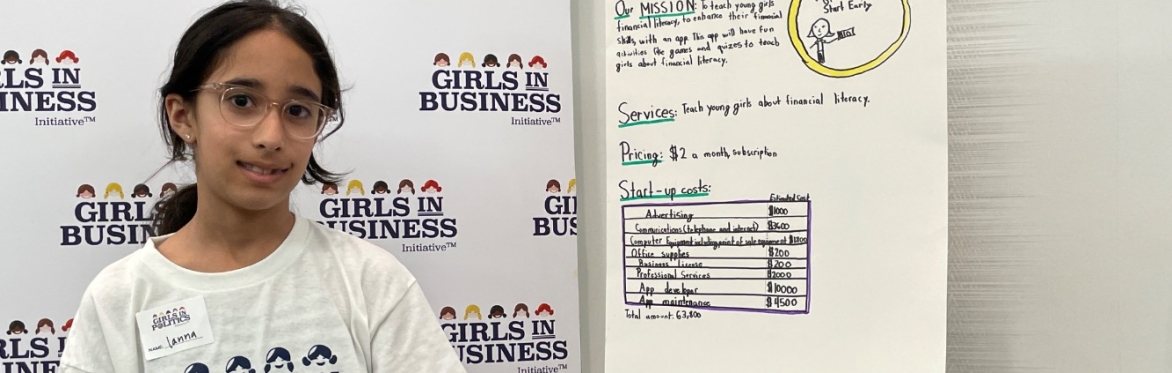 GIRLS IN
BUSINESS
Initiative™
GIRLS IN
BUSINESS
Initiative™
GIRLS IN
BUSINESS
Initiative™
GIRLS IN
BUSINESS
Initiative™
GIRLS IN
POLITICS
NAME: Ianna
Our MISSION: To teach young girls
financial literacy, to enhance their financial
skills, with an app. This app will have fun
activities like games and quizes to teach
girls about financial literacy.
Start Early
Services: Teach young girls about financial literacy.
Pricing: $2 a month, subscription
Start-up costs:
Estimated Cost
Advertising $1000
Communications (telephone and internet) $3600
Computer Equipment including point of sale equipment
Office supplies $200
Business License $200
Professional Services $2000
App developer $10000
App maintenance $4500
Total amount: 63,800